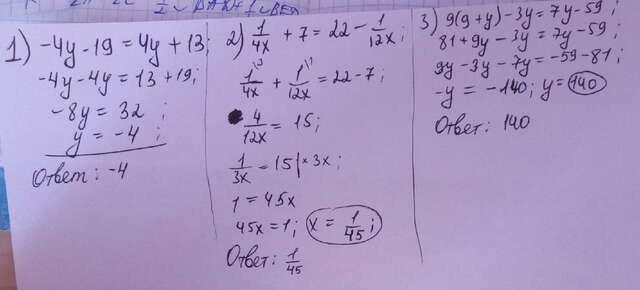 1) -4y - 19 = 4y + 13;
-4y - 4y = 13 + 19;
-8y = 32 ;
y = -4 ;
Ответ: -4
2) 1/4x + 7 = 22 - 1/12x;
1/4x + 1/12x = 22 - 7;
4/12x = 15;
1/3x = 15 | × 3x ;
1 = 45x
45x = 1; x = 1/45;
Ответ: 1/45
3) 9(9+y) - 3y = 7y - 59;
81 + 9y - 3y = 7y - 59;
9y - 3y - 7y = -59 - 81;
-y = -140; y = 140
Ответ: 140